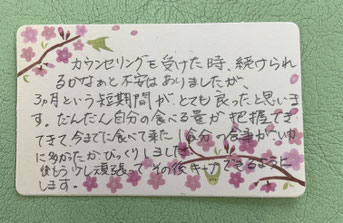 カウンセリングを受けた時、続けられ
るかなぁと不安はありましたが、
3ヶ月という短期間がとても良かったと思いま
す。だんだん自分の食べる量が把握できて
きて、今までに食べて来た1食分の食事がいか
に多かったか、びっくりしました。
後もう少し頑張って その後キープできるように
します。